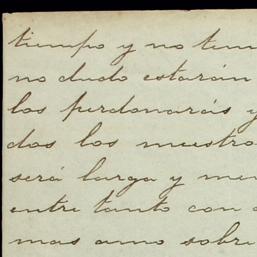 tiempo y no tem
no dudo estarán
los perdonarás y
dos los nuestro
será larga y me
entre tanto con
mas amo sobre